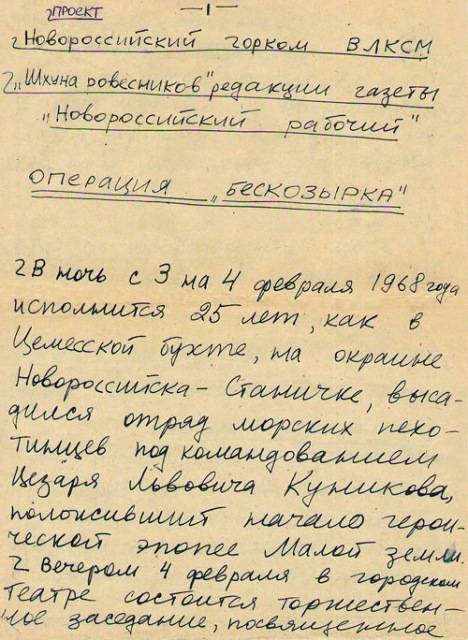 ПРОЕКТ
— 1 —
Новороссийский горком ВЛКСМ
"Шхуна ровесников" редакции газеты
"Новороссийский рабочий"
ОПЕРАЦИЯ "БЕСКОЗЫРКА"
В ночь с 3 на 4 февраля 1968 года
исполнится 25 лет, как в
Цемесской бухте, на окраине
Новороссийска – Станичке, выса-
дился отряд морских пехо-
тинцев под командованием
Цезаря Львовича Куникова,
положивший начало герои-
ческой эпопее Малой земли.
Вечером 4 февраля в городском
театре состоится торжествен-
ное заседание, посвященное